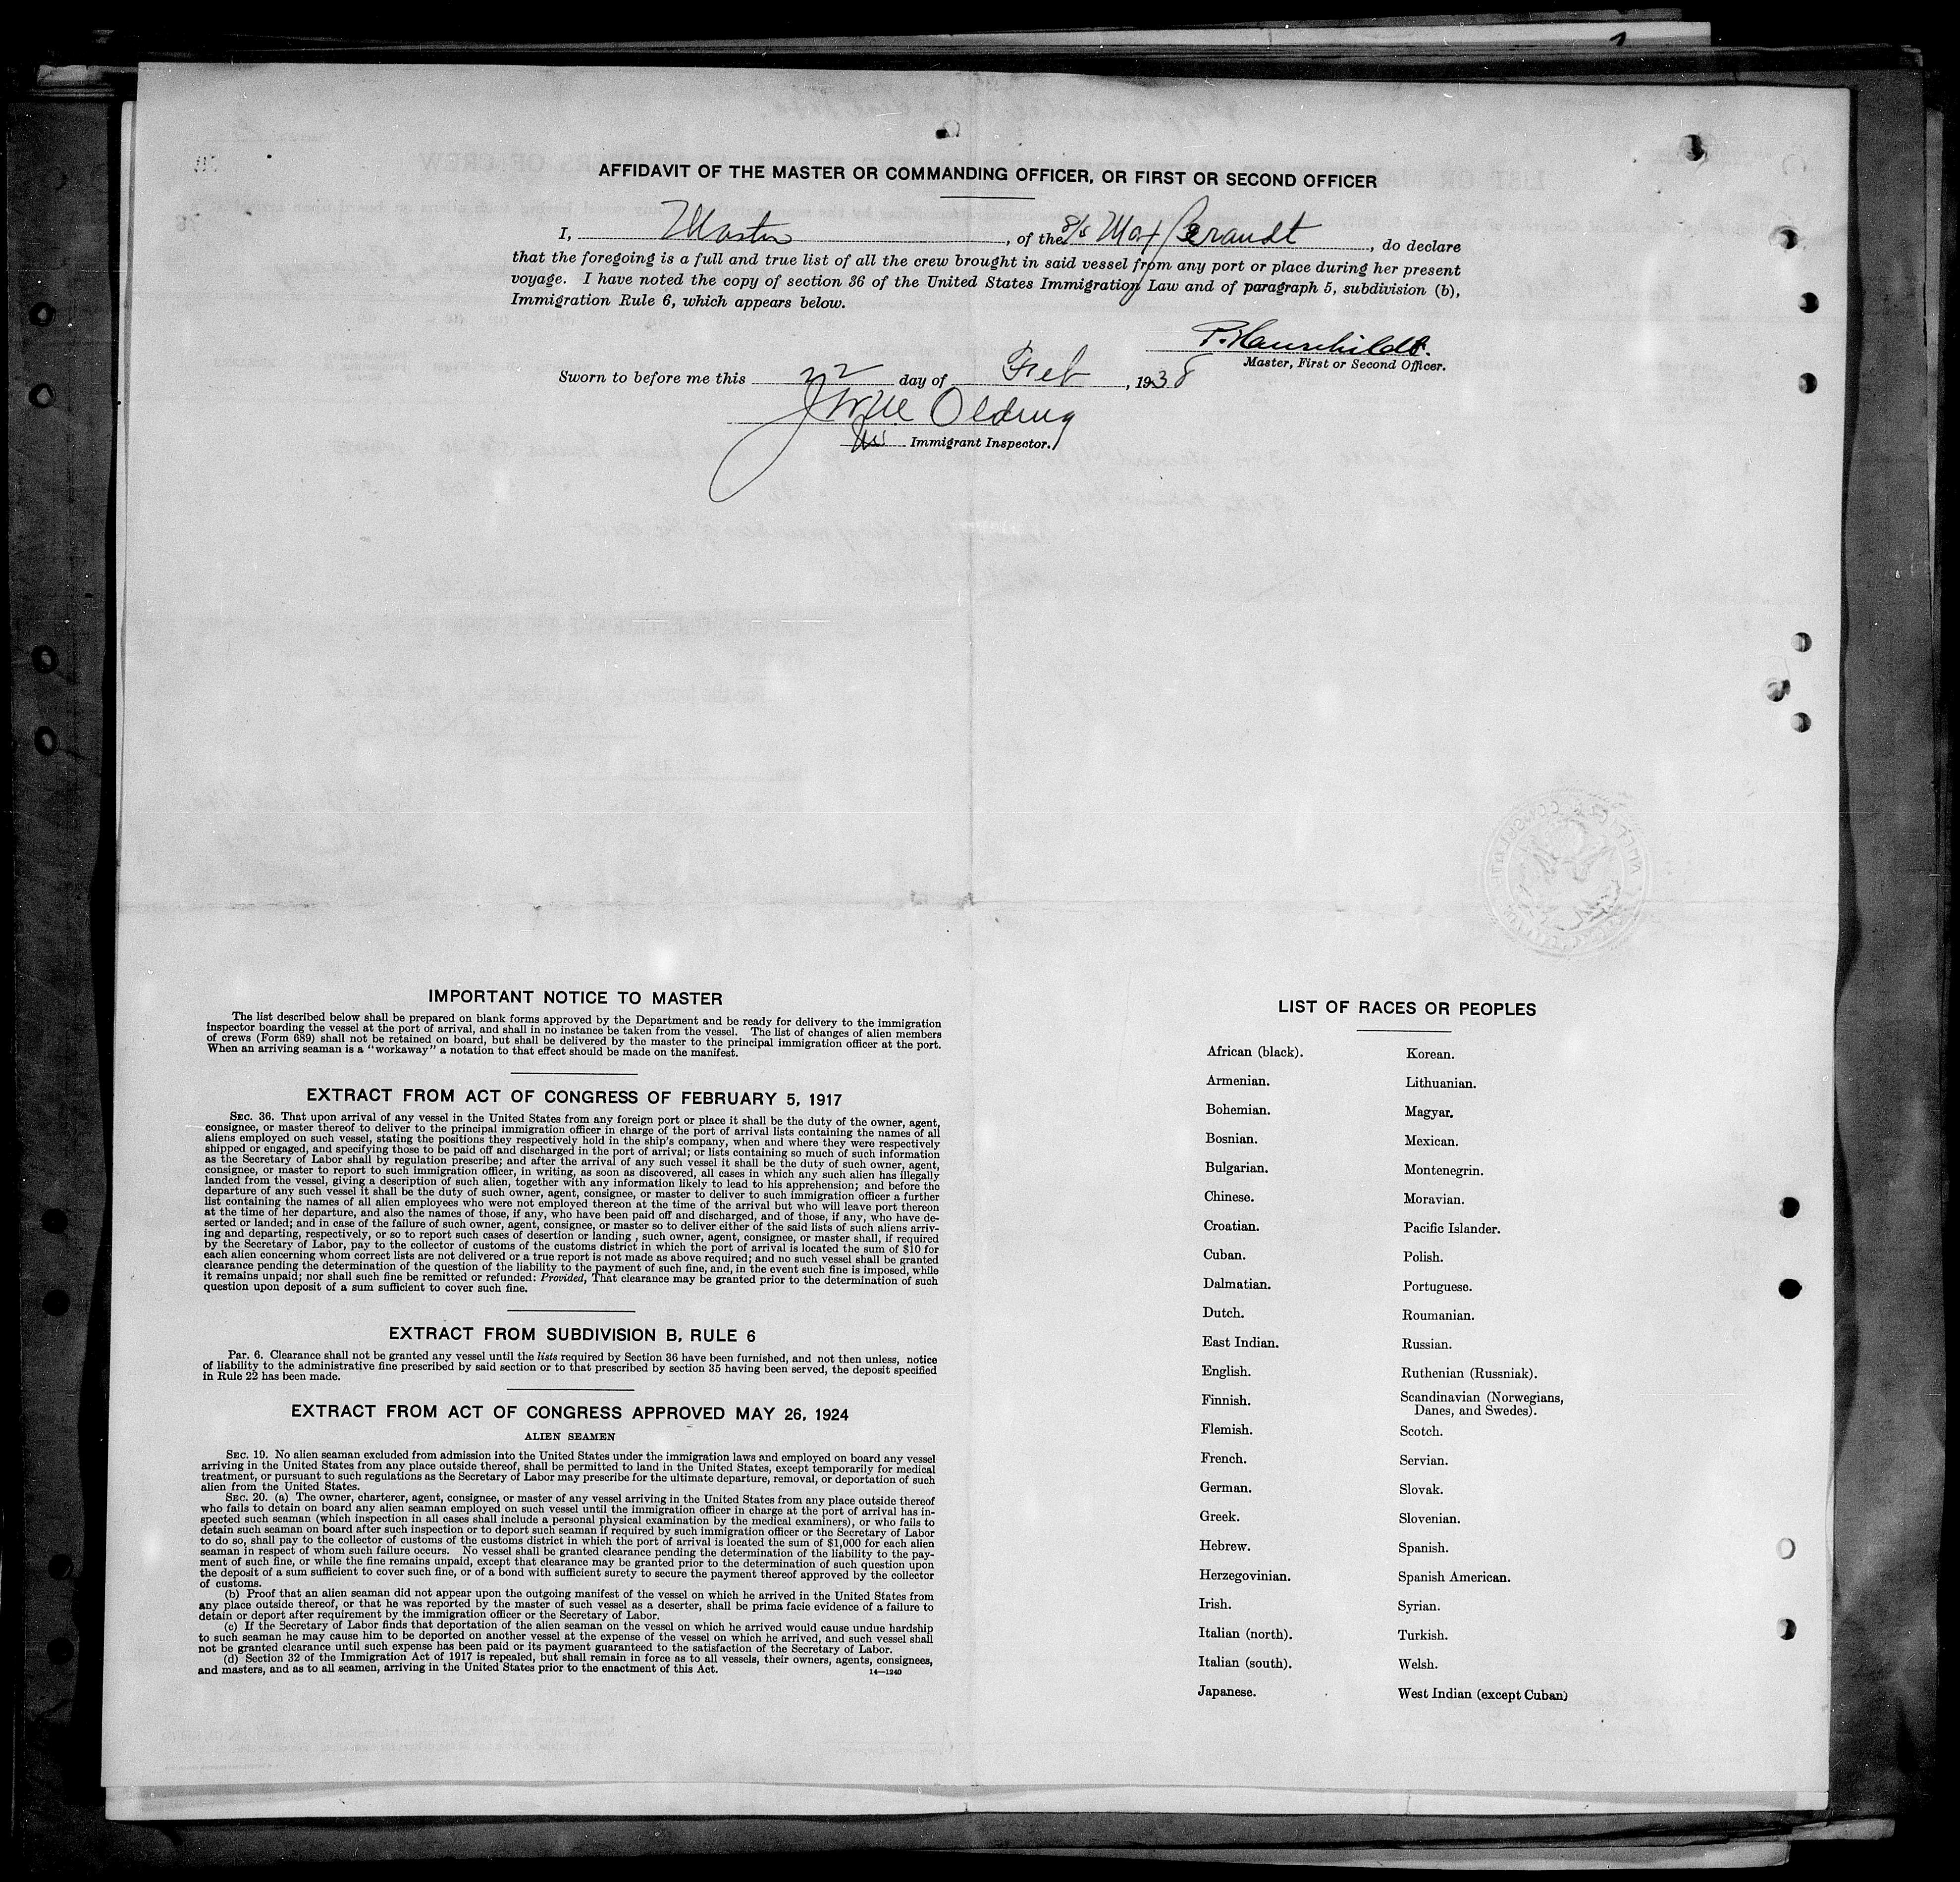 AFFIDAVIT OF THE MASTER OR COMMANDING OFFICER, OR FIRST OR SECOND OFFICER
I, Master, of the S/S Max Berandt, do declare
that the foregoing is a full and true list of all the crew brought in said vessel from any port or place during her present
voyage. I have noted the copy of section 36 of the United States Immigration Law and of paragraph 5, subdivision (b),
Immigration Rule 6, which appears below.
P. Hauschildt.
Master, First or Second Officer.
Sworn to before me this 22 day of Feb, 1938
Olding
Immigrant Inspector.
IMPORTANT NOTICE TO MASTER
The list described below shall be prepared on blank forms approved by the Department and be ready for delivery to the immigration
inspector boarding the vessel at the port of arrival, and shall in no instance be taken from the vessel. The list of changes of alien members
of crews (Form 689) shall not be retained on board, but shall be delivered by the master to the principal immigration officer at the port.
When an arriving seaman is a "workaway" a notation to that effect should be made on the manifest.
EXTRACT FROM ACT OF CONGRESS OF FEBRUARY 5, 1917
SEC. 36. That upon arrival of any vessel in the United States from any foreign port or place it shall be the duty of the owner, agent,
consignee, or master thereof to deliver to the principal immigration officer in charge of the port of arrival lists containing the names of all
aliens employed on such vessel, stating the positions they respectively hold in the ship's company, when and where they were respectively
shipped or engaged, and specifying those to be paid off and discharged in the port of arrival; or lists containing so much of such information
as the Secretary of Labor shall by regulation prescribe; and after the arrival of any such vessel it shall be the duty of such owner, agent,
consignee, or master to report to such immigration officer, in writing, as soon as discovered, all cases in which any such alien has illegally
landed from the vessel, giving a description of such alien, together with any information likely to lead to his apprehension; and before the
departure of any such vessel it shall be the duty of such owner, agent, consignee, or master to deliver to such immigration officer a further
list containing the names of all alien employees who were not employed thereon at the time of the arrival but who will leave port thereon
at the time of her departure, and also the names of those, if any, who have been paid off and discharged, and of those, if any, who have de-
serted or landed; and in case of the failure of such owner, agent, consignee, or master so to deliver either of the said lists of such aliens arriv-
ing and departing, respectively, or so to report such cases of desertion or landing , such owner, agent, consignee, or master shall, if required
by the Secretary of Labor, pay to the collector of customs of the customs district in which the port of arrival is located the sum of $10 for
each alien concerning whom correct lists are not delivered or a true report is not made as above required; and no such vessel shall be granted
clearance pending the determination of the question of the liability to the payment of such fine, and, in the event such fine is imposed, while
it remains unpaid; nor shall such fine be remitted or refunded: Provided, That clearance may be granted prior to the determination of such
question upon deposit of a sum sufficient to cover such fine.
EXTRACT FROM SUBDIVISION B, RULE 6
PAR. 6. Clearance shall not be granted any vessel until the lists required by Section 36 have been furnished, and not then unless, notice
of liability to the administrative fine prescribed by said section or to that prescribed by section 35 having been served, the deposit specified
in Rule 22 has been made.
EXTRACT FROM ACT OF CONGRESS APPROVED MAY 26, 1924
ALIEN SEAMEN
SEC. 19. No alien seaman excluded from admission into the United States under the immigration laws and employed on board any vessel
arriving in the United States from any place outside thereof, shall be permitted to land in the United States, except temporarily for medical
treatment, or pursuant to such regulations as the Secretary of Labor may prescribe for the ultimate departure, removal, or deportation of such
alien from the United States.
SEC. 20. (a) The owner, charterer, agent, consignee, or master of any vessel arriving in the United States from any place outside thereof
who fails to detain on board any alien seaman employed on such vessel until the immigration officer in charge at the port of arrival has in-
spected such seaman (which inspection in all cases shall include a personal physical examination by the medical examiners), or who fails to
detain such seaman on board after such inspection or to deport such seaman if required by such immigration officer or the Secretary of Labor
to do so, shall pay to the collector of customs of the customs district in which the port of arrival is located the sum of $1,000 for each alien
seaman in respect of whom such failure occurs. No vessel shall be granted clearance pending the determination of the liability to the pay-
ment of such fine, or while the fine remains unpaid, except that clearance may be granted prior to the determination of such question upon
the deposit of a sum sufficient to cover such fine, or of a bond with sufficient surety to secure the payment thereof approved by the collector
of customs.
(b) Proof that an alien seaman did not appear upon the outgoing manifest of the vessel on which he arrived in the United States from
any place outside thereof, or that he was reported by the master of such vessel as a deserter, shall be prima facie evidence of a failure to
detain or deport after requirement by the immigration officer or the Secretary of Labor.
(c) If the Secretary of Labor finds that deportation of the alien seaman on the vessel on which he arrived would cause undue hardship
to such seaman he may cause him to be deported on another vessel at the expense of the vessel on which he arrived, and such vessel shall
not be granted clearance until such expense has been paid or its payment guaranteed to the satisfaction of the Secretary of Labor.
(d) Section 32 of the Immigration Act of 1917 is repealed, but shall remain in force as to all vessels, their owners, agents, consignees,
and masters, and as to all seamen, arriving in the United States prior to the enactment of this Act.
14—1240
LIST OF RACES OR PEOPLES
African (black).
Armenian.
Bohemian.
Bosnian.
Bulgarian.
Chinese.
Croatian.
Cuban.
Dalmatian.
Dutch.
East Indian.
English.
Finnish.
Flemish.
French.
German.
Greek.
Hebrew.
Herzegovinian.
Irish.
Italian (north).
Italian (south).
Japanese.
Korean.
Lithuanian.
Magyar.
Mexican.
Montenegrin.
Moravian.
Pacific Islander.
Polish.
Portuguese.
Roumanian.
Russian.
Ruthenian (Russniak).
Scandinavian (Norwegians,
Danes, and Swedes).
Scotch.
Servian.
Slovak.
Slovenian.
Spanish.
Spanish American.
Syrian.
Turkish.
Welsh.
West Indian (except Cuban)